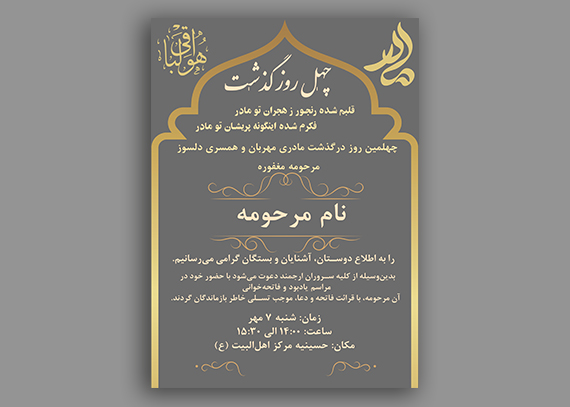 هو الباقی
مادر
چهل روز گذشت
قلبم شده رنجور ز هجران تو مادر
فکرم شده اینگونه پریشان تو مادر
چهلمین روز درگذشت مادری مهربان و همسری دلسوز
مرحومه مغفوره
نام مرحومه
را به اطلاع دوستان، آشنایان و بستگان گرامی می‌رسانیم.
بدین‌وسیله از کلیه سروران ارجمند دعوت می‌شود با حضور خود در
مراسم یادبود و فاتحه‌خوانی
آن مرحومه، با قرائت فاتحه و دعا، موجب تسلی خاطر بازماندگان گردند.
زمان: شنبه ۷ مهر
ساعت: ۱۴:۰۰ الی ۱۵:۳۰
مکان: حسینیه مرکز اهل‌البیت (ع)